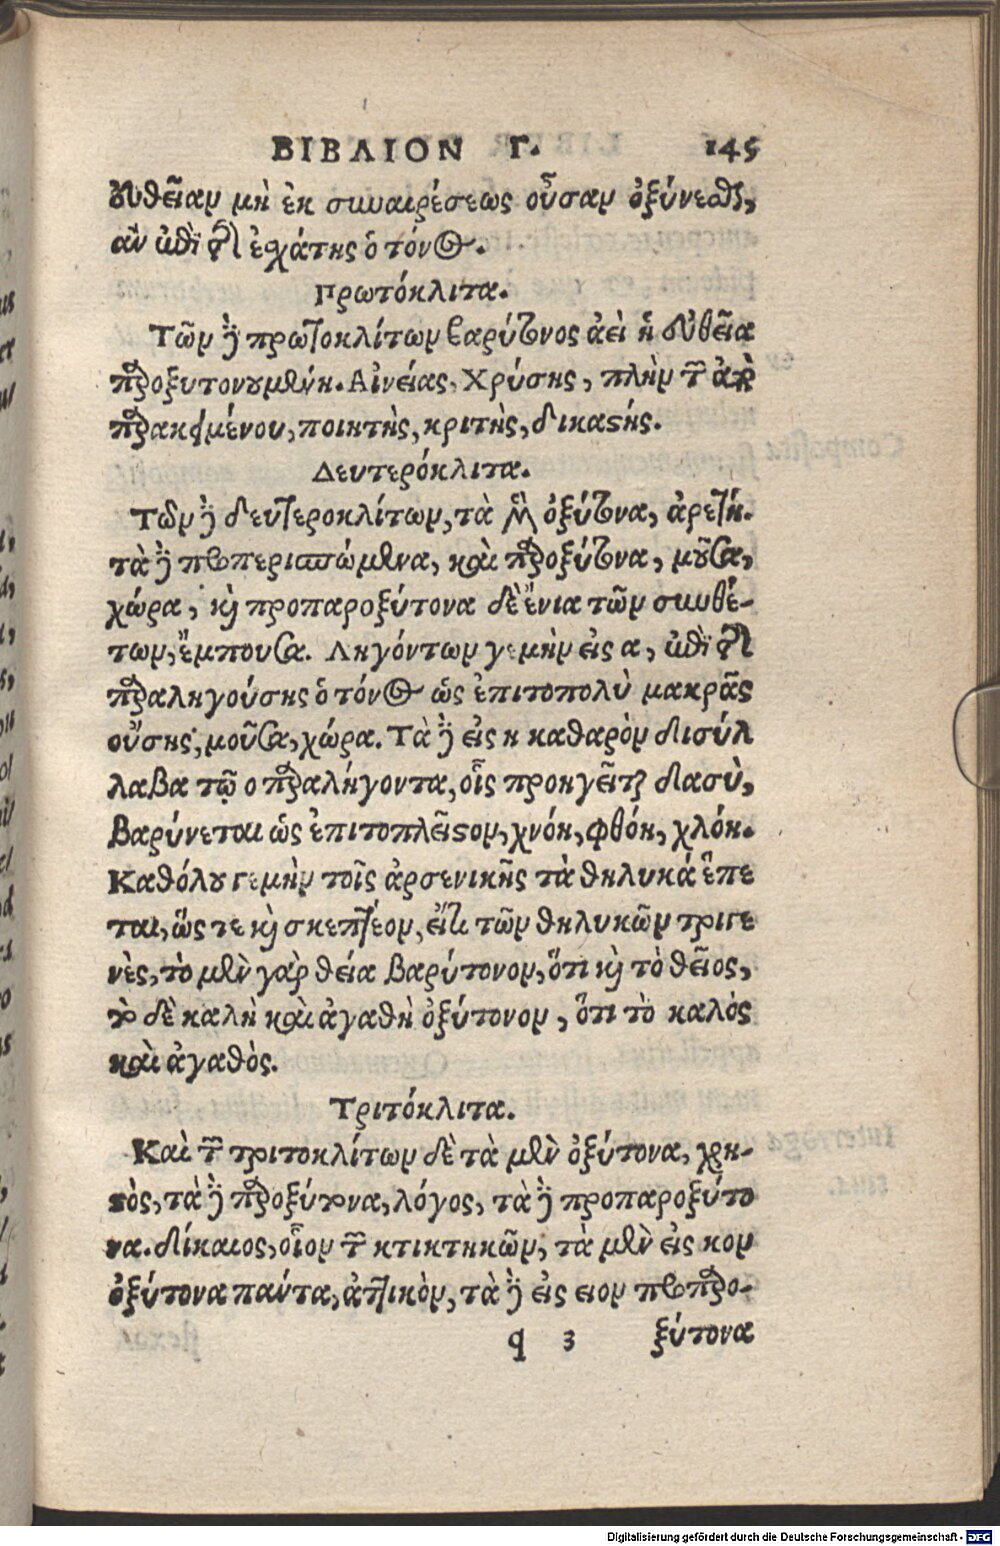 ΒΙΒΛΙΟΝ Γ. 145
εὐθεῖαν μὴ ἐκ συναιρέσεως οὖσαν ὀξύνεσθαι,
ἀν ἐπὶ τῆς ἐσχάτης ὁ τόνος.
Πρωτόκλιτα.
Τῶν δὲ πρωτοκλίτων βαρύτονος ἀεὶ ἡ εὐθεῖα
παροξυτονουμένη. Αἰνείας, Χρύσης, πλὴν τῶν ἀπὸ
παρακειμένου, ποιητὴς, κριτὴς, δικαστής.
Δευτερόκλιτα.
Τῶν δὲ δευτεροκλίτων, τὰ μὲν ὀξύτονα, ἀρετή.
τὰ δὲ προπερισπώμενα, καὶ παροξύτονα, μοῦσα,
χώρα, καὶ προπαροξύτονα δὲ ἔνια τῶν συνθέ-
των, ἔμπουσα. Ληγόντων γε μὴν εἰς α, ἐπὶ τῆς
παραληγούσης ὁ τόνος ὡς ἐπιτοπολὺ μακρᾶς
οὔσης, μοῦσα, χώρα. Τὰ δὲ εἰς η καθαρὸν δισύλ
λαβα τῷ ο παραλήγοντα, οἷς προηγεῖται δασὺ,
βαρύνεται ὡς ἐπιτοπλεῖστον, χνόη, φθόη, χλόη.
Καθόλου γε μὴν τοῖς ἀρσενικῆς τὰ θηλυκά ἕπε
ται, ὥς τε καὶ σκεπτέον, εἴτε τῶν θηλυκῶν τριγε
νὲς, τὸ μὲν γὰρ θεία βαρύτονον, ὅτι καὶ τὸ θεῖος,
τὸ δὲ καλὴ καὶ ἀγαθὴ ὀξύτονον, ὅτι τὸ καλὸς
καὶ ἀγαθὸς.
Τριτόκλιτα.
Καὶ τῶν τριτοκλίτων δὲ τὰ μὲν ὀξύτονα, χρη-
στὸς, τὰ δὲ παροξύτονα, λόγος, τὰ δὲ προπαροξύτο
να. δίκαιος, οἷον τῶν κτικτηκῶν, τὰ μὲν εἰς κον
ὀξύτονα πάντα, ἀττικὸν, τὰ δὲ εἰς ειον προπαρο-
q 3 ξύτονα
Digitalisierung gefördert durch die Deutsche Forschungsgemeinschaft - DFG